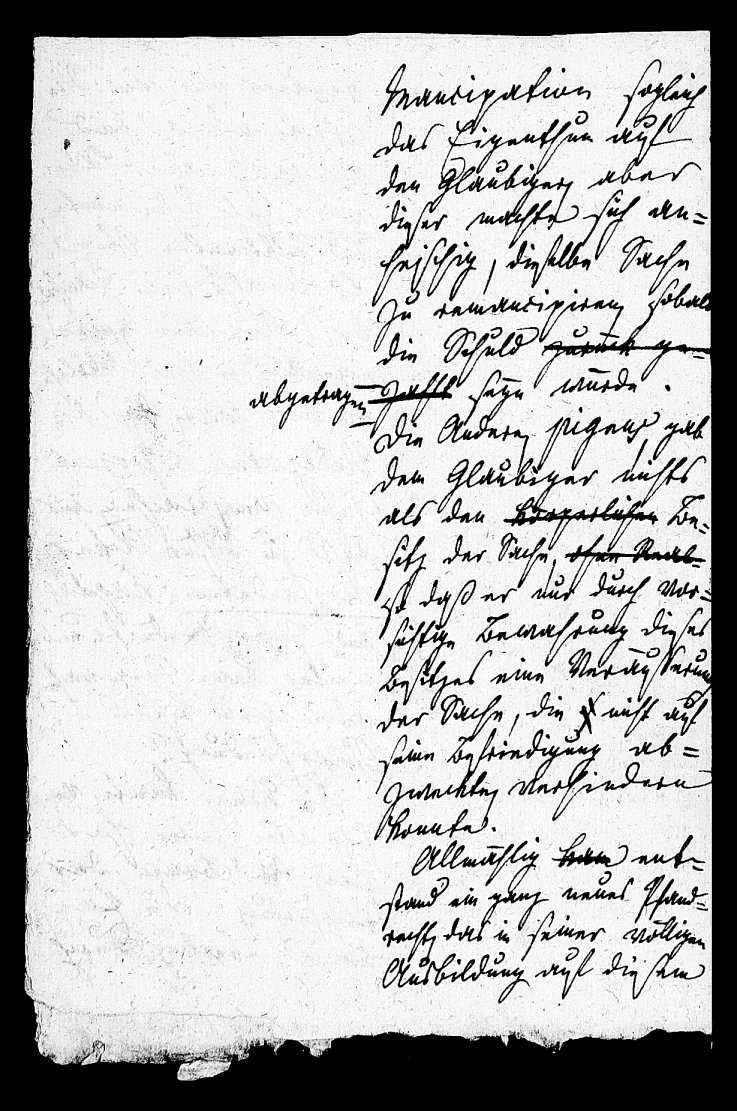 Mancipation sogleich
das Eigenthum auf
den Glaubiger, aber
dieser machte sich an=
heischig, dieselbe Sache
zu remancipiren, sobald
die Schuld zurück ge=
abgetragen zahlt seyn würde.
Die Andere, pignus, gab
dem Glaubiger nichts
als den körperlichen Be=
sitz der Sache, ohne Real=
so daß er nur durch vor=
sichtige Bewahrung dieses
Besitzes eine Veräusserung
der Sache, die nicht auf
seine Befriedigung ab=
zweckte, verhindern
konnte.
Allmählig kam ent=
stand ein ganz neues Pfand=
recht, das in seiner völligen
Ausbildung auf diesem